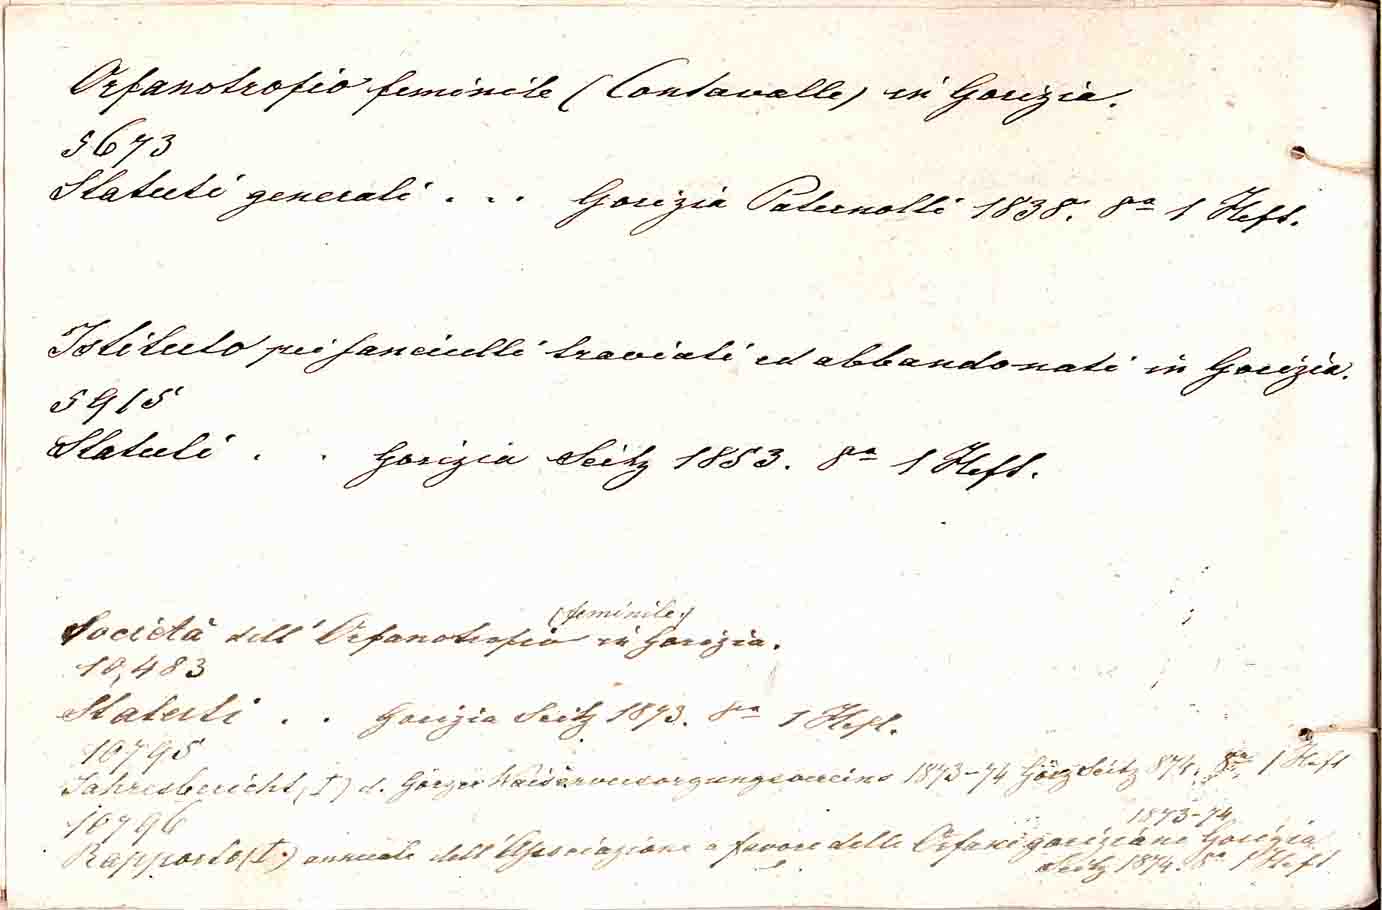 Orfanotrofio feminile (Contavalle) in Gorizia.
5673
Statuti generali . . . Gorizia Paternolli 1838. 8va 1 Heft.
Istituto pei fanciulli traviati ed abbandonati in Gorizia.
5915
Statuti . . Gorizia Seitz 1853. 8va 1 Heft.
(feminile)
Società dell' Orfanotrofio in Gorizia.
10,483
Statuti . . Gorizia Seitz 1873. 8va 1 Heft.
10795
Jahresbericht (I) d. Görzer Waisenversorgungsvereins 1873-74 Görz Seitz 874. 8va. 1 Heft
10796
1873-74
Rapporto (I.) annuale dell' Associazione a favore delle Orfane goriziane Gorizia
Seitz 1874. 8a 1 Heft